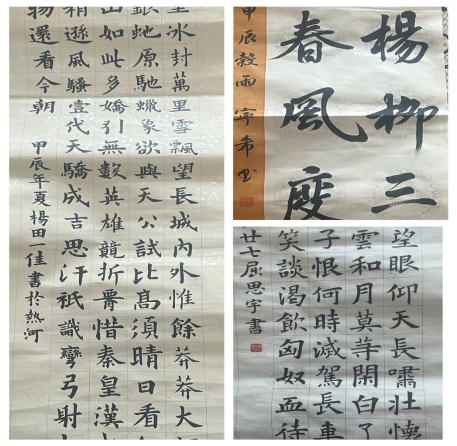 里冰封萬里雪飄望長城内外惟餘莽莽大
銀蛇原馳蠟象欲與天公試比高須晴日看
山如此多嬌引無數英雄競折腰惜秦皇漢
稍遜風騷壹代天驕成吉思汗祇識彎弓射
物還看今朝
甲辰年夏楊田一佳書於熱河
楊柳三
春風度
甲辰穀雨 寧希書
望眼仰天長嘯壯懷
雲和月莫等閑白了
子恨何時滅駕長車
笑談渴飲匈奴血待
廿七屈思宇書